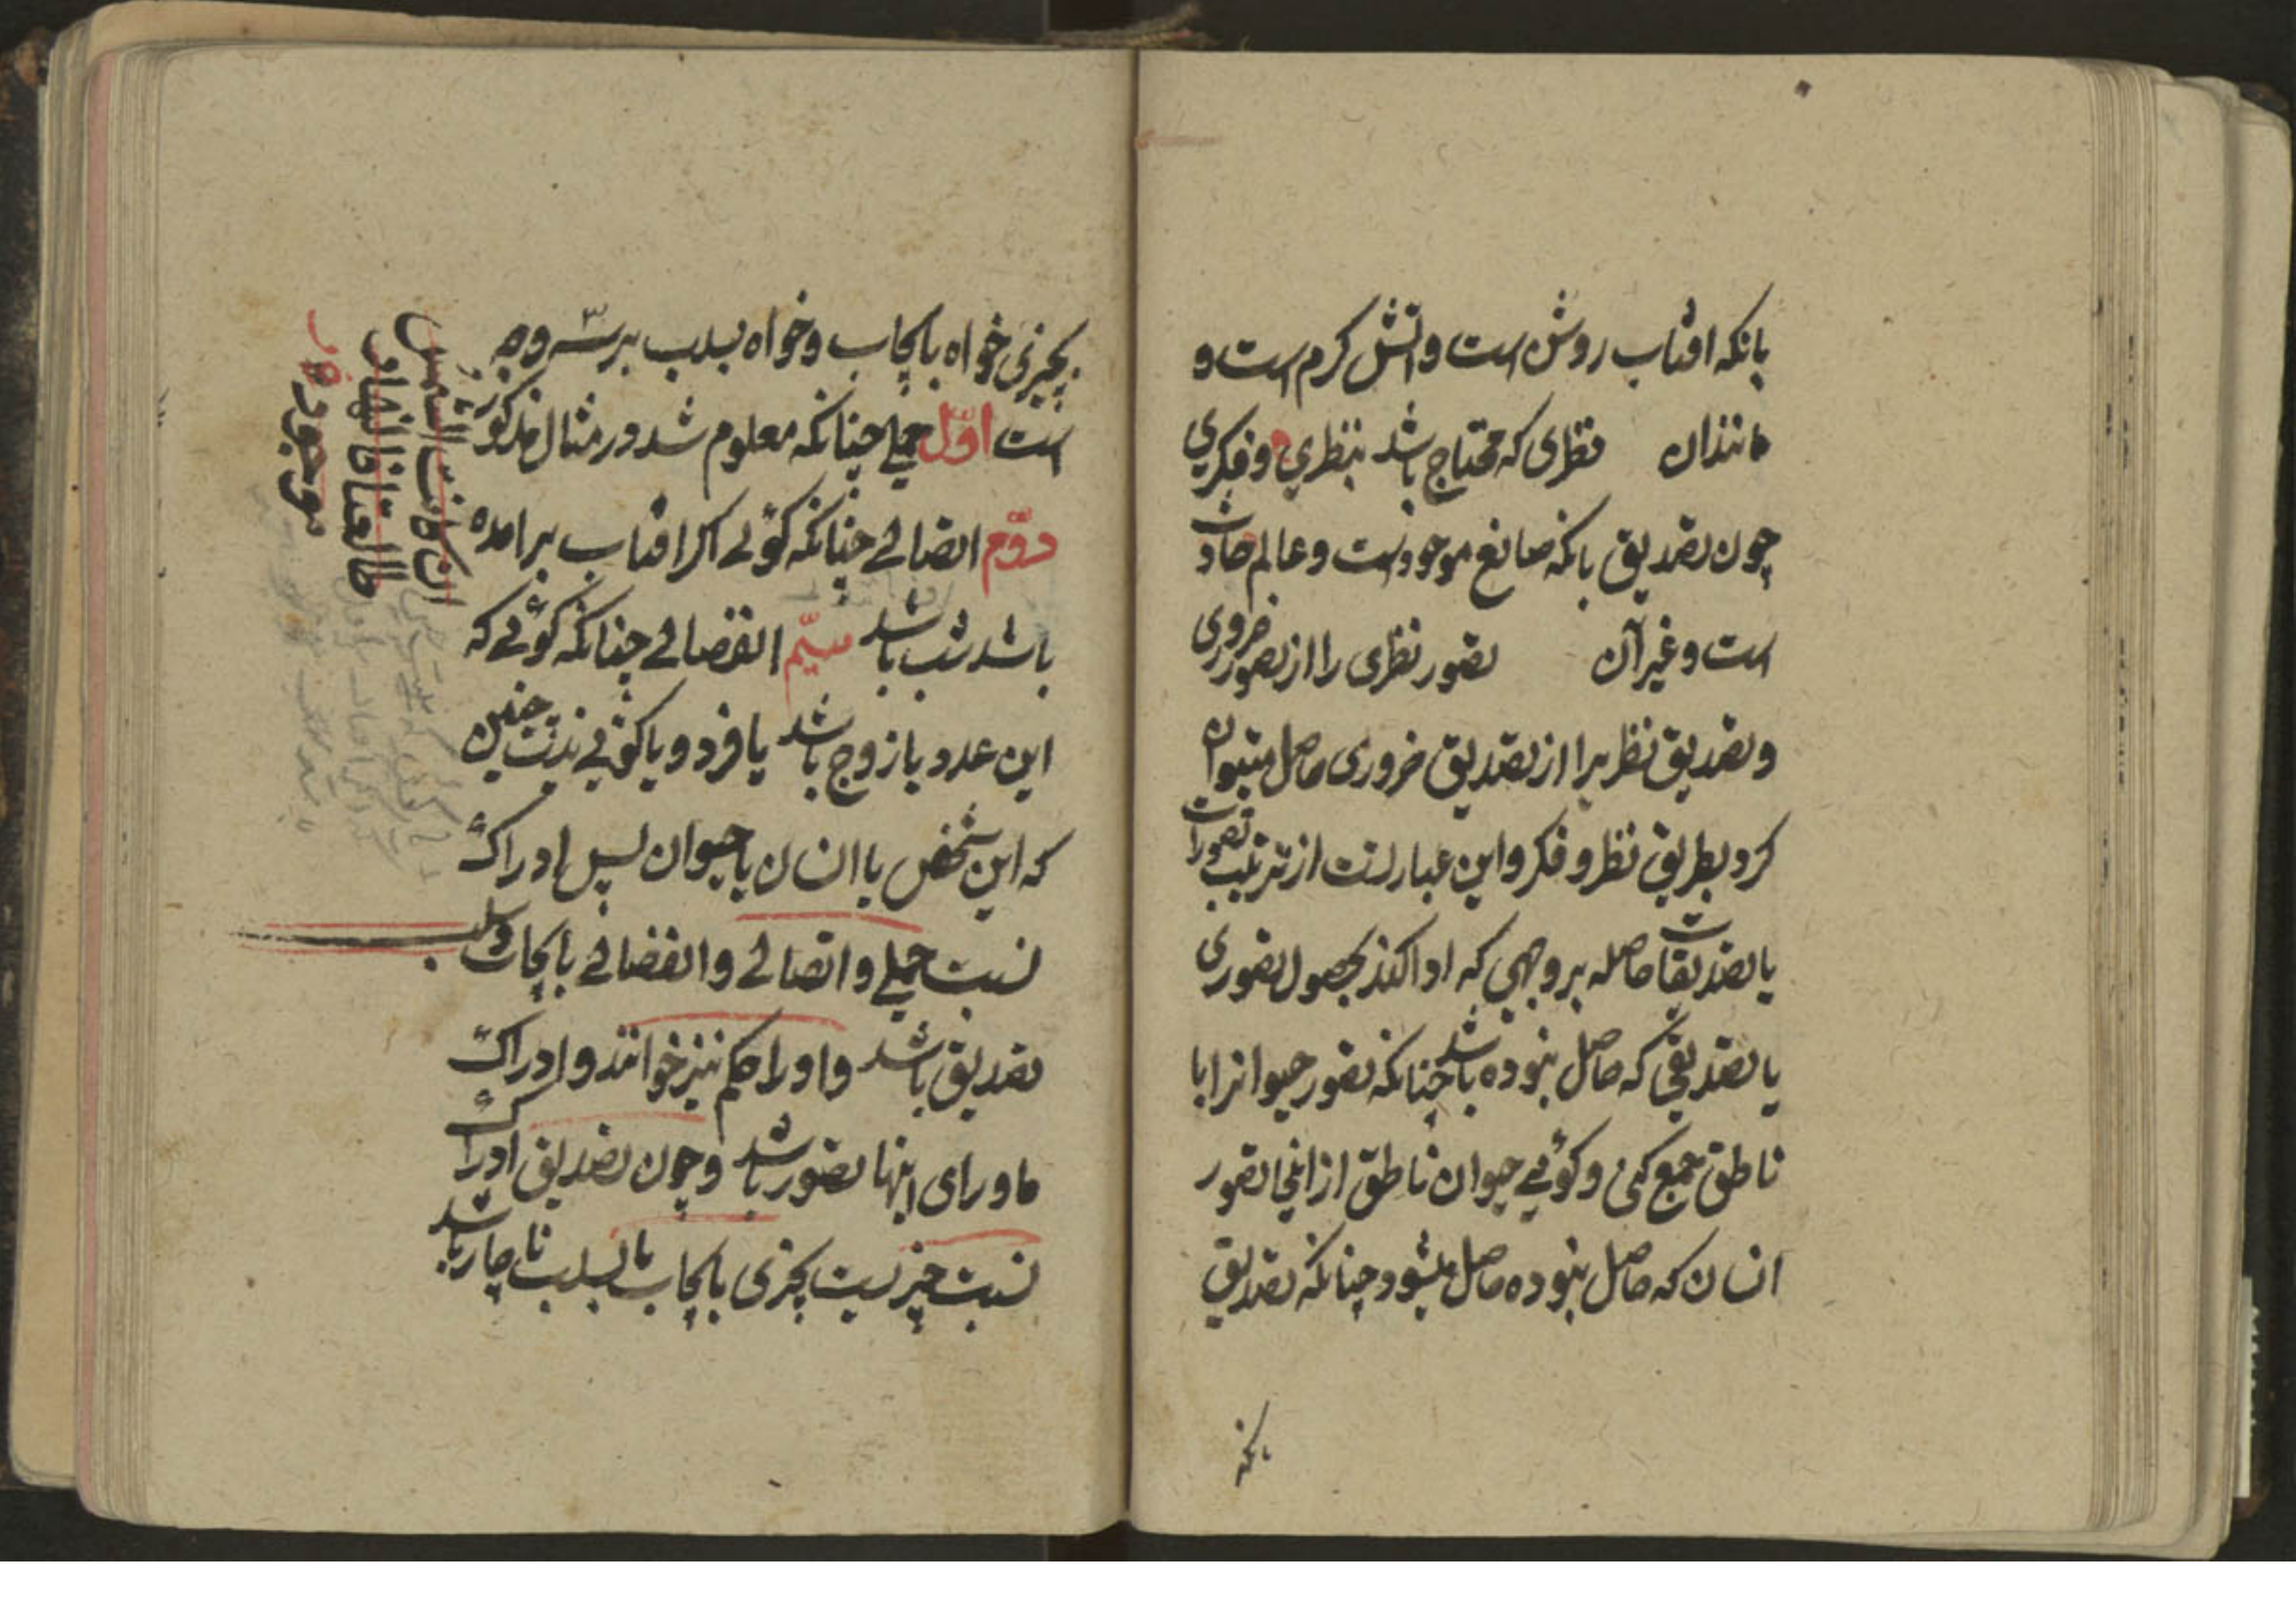 بانکه افتاب روشن است و اتش کرم است و
مانندان نظری که محتاج باشد بنظری و فکری
چون تصدیق بانکه صانع موجودست و عالم حادث
است و غیر آن تصور نظری را از تصور ضروری
و تصدیق نظریرا از تصدیق ضروری حاصل میتوان
کرد بطریق نظر و فکر و این عبارتست از ترتیب تصورات
یا تصدیقات حاصله بر وجهی که ادا کند بحصول تصوری
یا تصدیقی که حاصل نبوده باشد چنانکه تصور حیوانرا با
ناطق جمع کنی و کوئی حیوان ناطق از اینجا تصور
انسان که حاصل نبوده حاصل میشود چنانکه تصدیق
بانکه
بچیزی خواه بایجاب و خواه بسلب بر سه وجه
است اوّل حملی چنانکه معلوم شد در مثال مذکور
دوّم اتصالی چنانکه کوئی اکر افتاب برامده
باشد شب باشد سیّم انفصالی چنانکه کوئی که
این عدد یا زوج باشد یا فرد و یا کوئی نیست چنین
که این شخص یا انسان یا حیوان پس ادراک
نسبت حملی و اتصالی و انفصالی بایجاب و سلب
تصدیق باشد و او را حکم نیز خوانند و ادراک
ماورای اینها تصور باشد و چون تصدیق ادراک
نسبت چیزیست بچیزی بایجاب یا بسلب ناچار باشد
ان کانت الشمس
طالعتا فالنهار
موجود